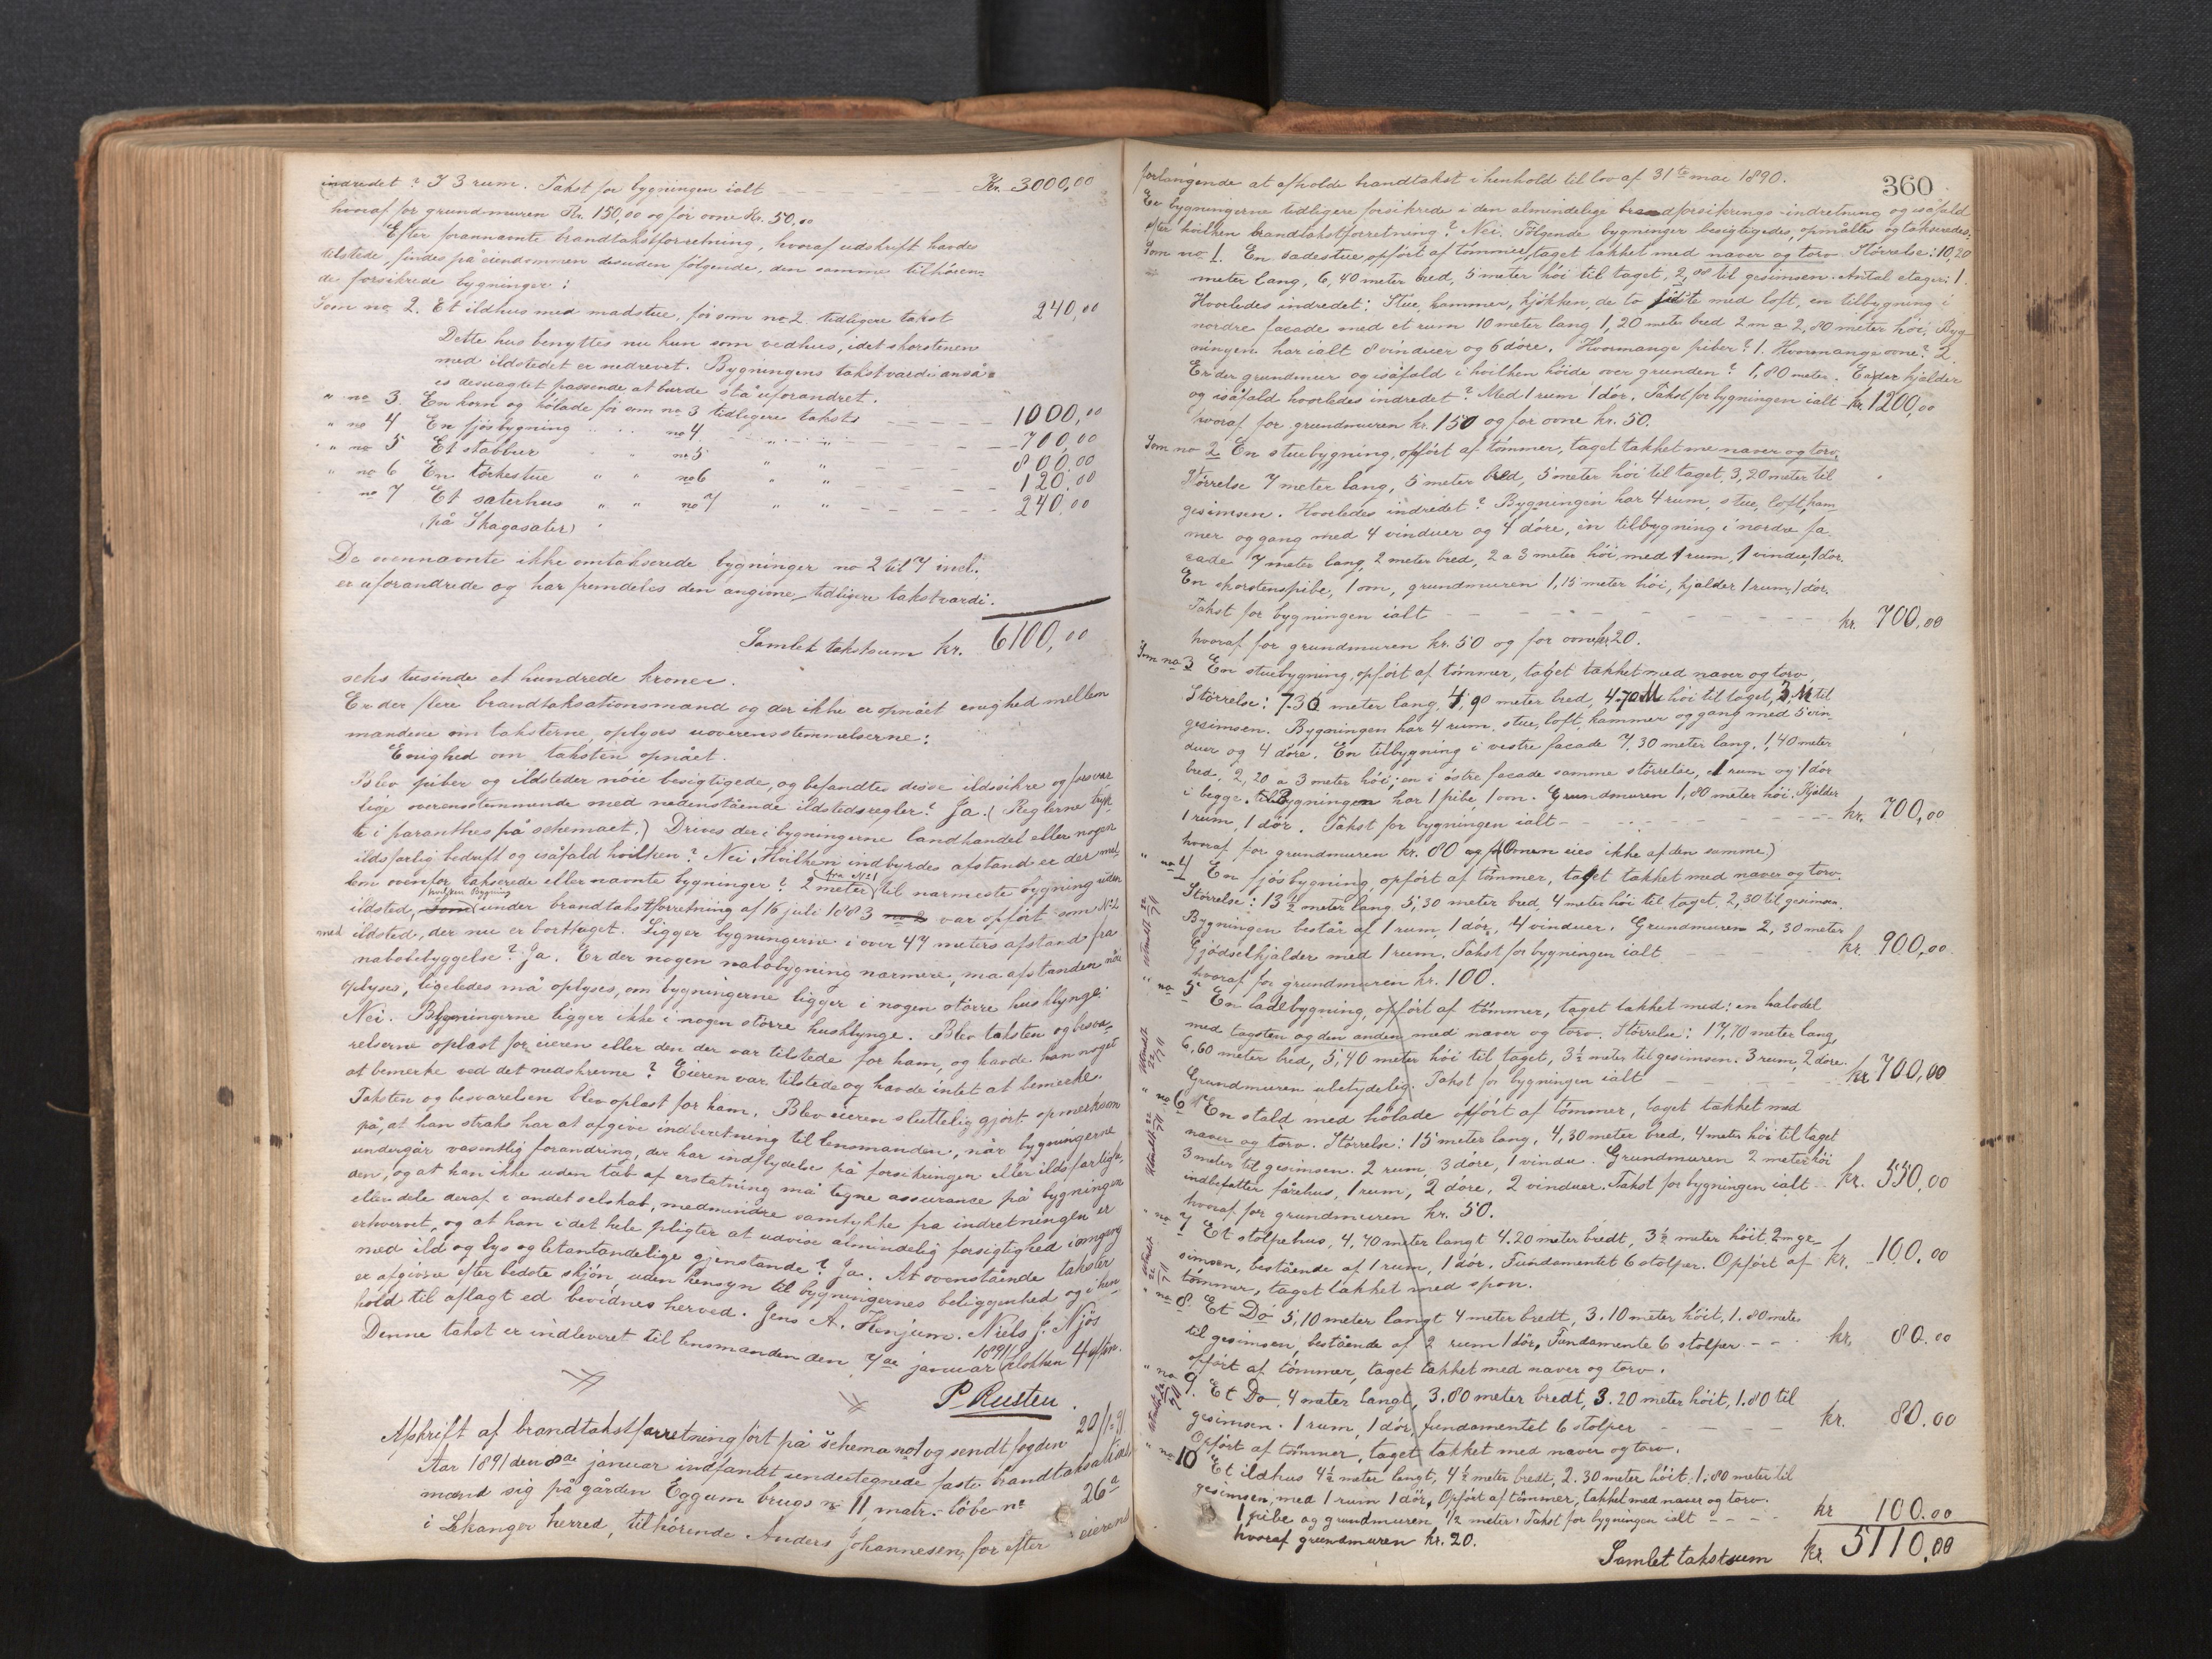 indredet? I 3 rum. Takst for bygningen ialt Kr. 3000,00
hvoraf for grundmuren Kr. 150,00 og for ovne Kr. 50,00
Efter forannævnte brandtakstforretning, hvoraf udskrift havdes
tilstede, findes på eiendommen desuden følgende, den samme tilhøren-
de forsikrede bygninger:
Som no 2. Et ildhus med madstue, før som no 2 tidligere takst 240,00
Dette hus benyttes nu kun som vedhus, idet skorstenen
med ildstedet er nedrevet. Bygningens takstværdi ansåes
es desuagtet passende at burde stå uforandret.
" no 3. En korn og hölade för som no 3 tidligere takst 1000,00
" no 4 En fjøsbygning " " no 4 " " 700,00
" no 5 Et stabbur " " no 5 " " 800,00
" no 6 En torkestue " " no 6 " " 120,00
" no 7 Et sæterhus " " no 7 " " 240,00
(på Skagasæter)
De ovennævnte ikke omtakserede bygninger no 2 til 7 incl.
er uforandrede og har fremdeles den angivne tidligere takstværdi.
Samlet takstsum kr. 6100,00
seks tusinde et hundrede kroner.
Er der flere brandtaksationsmænd og der ikke er opnået enighed mellem
mændene om taksterne, oplyses uoverensstemmelserne:
Enighed om taksten opnået.
Blev piber og ildsteder nöie besigtigede, og befandtes disse ildssikre og forsvar-
lige overensstemmende med nedenstående ildstedsregler? Ja. (Reglerne trykt
te i paranthes på schemaet.) Drives der i bygningerne landhandel eller nogen
ildsfarlig bedrift og isåfald hvilken? Nei. Hvilken indbyrdes afstand er der mel-
lem ovenfor takserede eller nævnte bygninger? 2 meter fra No 1 til nærmeste bygning uden
ildsted, som hvilken Bygning under brandtakstforretning af 16 juli 1883 no 2 var opført som No 2
med ildsted, der nu er borttaget. Ligger bygningerne i over 47 meters afstand fra
nabobebyggelse? Ja. Er der nogen nabobygning nærmere, må afstanden nöie
oplyses, ligeledes må oplyses, om bygningerne ligger i nogen större husklynge.
Nei. Bygningerne ligger ikke i nogen större husklynge. Blev taksten og besva-
relserne oplæst for eieren eller den der var tilstede for ham, og havde han noget
at bemerke ved det nedskrevne? Eieren var tilstede og havde intet at bemerke.
Taksten og besvarelsen blev oplæst for ham. Blev eieren sluttelig gjort opmerksom
på, at han straks har at afgive indberetning til lensmanden, når bygningerne
undergår væsentlig forandring, der har indflydelse på forsikringen eller ildsfarlighe-
den, og at han ikke uden tab af erstatning må tegne assurance på bygninger
eller dele deraf i andet selskab, medmindre samtykke fra indretningen er
erhvervet, og at han i det hele pligter at udvise almindelig forsigtighed i omgang
med ild og lys og letantændelige gjenstande? Ja. At ovenstående takster
er afgivne efter bedste skjön, uden hensyn til bygningernes beliggenhed og i hen-
hold til aflagt ed bevidnes herved. Jens A. Henjum. Niels J. Njös
Denne takst er indleveret til lensmanden den 7de januar 1891 klokken 4 eftm.
P. Rusten.
Afskrift af brandtakstforretning fört på schema no 1 og sendt fogden 20/1 91
Aar 1891 den 8de januar indfandt undertegnede faste brandtaksations-
mænd sig på gården Eggum brugs no 11, matr.-löbe-no 26a
i Leikanger herred, tilhörende Anders Johannesen, for efter eierens
360
forlangende at afholde brandtakst i henhold til lov af 31te mai 1890.
Er bygningerne tidligere forsikrede i den almindelige brandforsikrings-indretning og isåfald
efter hvilken brandtakstforretning? Nei. Fölgende bygninger besigtigedes, opmåltes og takseredes:
Som no 1. En sadestue, opfört af tömmer, taget tækket med næver og torv. Störrelse: 10,20
meter lang, 6,40 meter bred, 5 meter höi til taget, 2,00 til gesimsen. Antal etager: 1.
Hvorledes indredet: Stue, kammer, kjökken, de to sidste med loft, en tilbygning i
nordre facade med et rum 10 meter lang 1,20 meter bred 2 m a 2,80 meter höi. Byg-
ningen har ialt 8 vinduer og 6 döre. Hvormange piber? 1. Hvormange ovne? 2.
Er der grundmur og isåfald i hvilken höide over grunden? 1,80 meter. Er der kjelder
og isåfald hvorledes indredet? Med 1 rum 1 dör. Takst for bygningen ialt kr 1200,00
hvoraf for grundmuren kr. 150 og for ovne kr. 50.
Som no 2. En stuebygning, opfört af tömmer, taget tækket me næver og torv.
Störrelse 7 meter lang, 5 meter bred, 5 meter höi til taget, 3,20 meter til
gesimsen. Hvorledes indredet? Bygningen har 4 rum, stue, loft, kam-
mer og gang med 4 vinduer og 4 döre, en tilbygning i nordre fa-
cade 7 meter lang, 2 meter bred, 2 a 3 meter höi, med 1 rum, 1 vindue, 1 dör.
En skorstenspibe, 1 ovn, grundmuren 1,15 meter höi, kjelder 1 rum, 1 dör.
Takst for bygningen ialt kr. 700,00
hvoraf for grundmuren kr. 50 og for ovne kr. 20.
Som no 3 En stuebygning, opfört af tömmer, taget tækket med næver og torv,
Störrelse: 7.30 meter lang, 4,90 meter bred, 4.70 M höi til taget, 3 M til
gesimsen. Bygningen har 4 rum, stue, loft, kammer og gang med 5 vin-
duer og 4 döre. En tilbygning i vestre facade 7,30 meter lang, 1,40 meter
bred, 2,20 a 3 meter höi; en i östre facade samme störrelse, 1 rum og 1 dör
i begge. Bygningen har 1 pibe, 1 ovn. Grundmuren 1,80 meter höi. Kjelder
1 rum, 1 dör. Takst for bygningen ialt kr. 700,00
hvoraf for grundmuren kr. 80 (Ovnen eies ikke af den samme)
" no 4 En fjösbygning, opfört af tömmer, taget tækket med næver og torv.
Störrelse: 13 1/2 meter lang 5,30 meter bred 4 meter höi til taget, 2,30 til gesimsen.
Bygningen består af 1 rum, 1 dör, 4 vinduer. Grundmuren 2,30 meter
Gjödselkjelder med 1 rum. Takst for bygningen ialt kr. 900,00
hvoraf for grundmuren kr. 100.
" no 5 En ladebygning, opfört af tömmer, taget tækket med: en halvdel
med tagsten og den anden med næver og torv. Störrelse: 17,70 meter lang,
6,60 meter bred, 5,40 meter höi til taget, 3 1/2 meter til gesimsen. 3 rum, 2 döre.
Grundmuren ubetydelig. Takst for bygningen ialt kr 700,00
" no 6 En stald med hölade opfört af tömmer, taget tækket med
næver og torv. Störrelse: 15 meter lang, 4,30 meter bred, 4 meter höi til taget
3 meter til gesimsen. 2 rum, 3 döre, 1 vindu. Grundmuren 2 meter höi
indbefatter fårehus, 1 rum, 2 döre, 2 vinduer. Takst for bygningen ialt kr. 550,00
hvoraf for grundmuren kr. 50.
" no 7 Et stolpehus, 4,70 meter langt 4.20 meter bredt, 3 1/2 meter höit 2 m ge-
simsen, bestående af 1 rum, 1 dör. Fundamentet 6 stolper. Opfört af kr. 100.00
tömmer, taget tækket med spon.
" no 8. Et Do 5,10 meter langt 4 meter bredt, 3.10 meter höit, 1.80 meter
til gesimsen, bestående af 2 rum 1 dör, Fundamente 6 stolper kr. 80.00
opfört af tömmer, taget tækket med næver og torv.
" no 9. Et Do 4 meter langt, 3.80 meter bredt, 3.20 meter höit, 1.80 til
gesimsen. 1 rum, 1 dör, fundamentet 6 stolper kr. 80.00
Opfört af tömmer, taget tækket med næver og torv.
" no 10 Et ildhus 4 1/2 meter langt, 4 1/2 meter bredt, 2.30 meter höit, 1.80 meter til
gesimsen, med 1 rum 1 dör, Opfört af tömmer, tækket med næver og torv.
1 pibe og grundmuren 1/2 meter. Takst for bygningen ialt kr 100.00
hvoraf grundmuren kr. 20.
Samlet takstsum kr. 5110,00